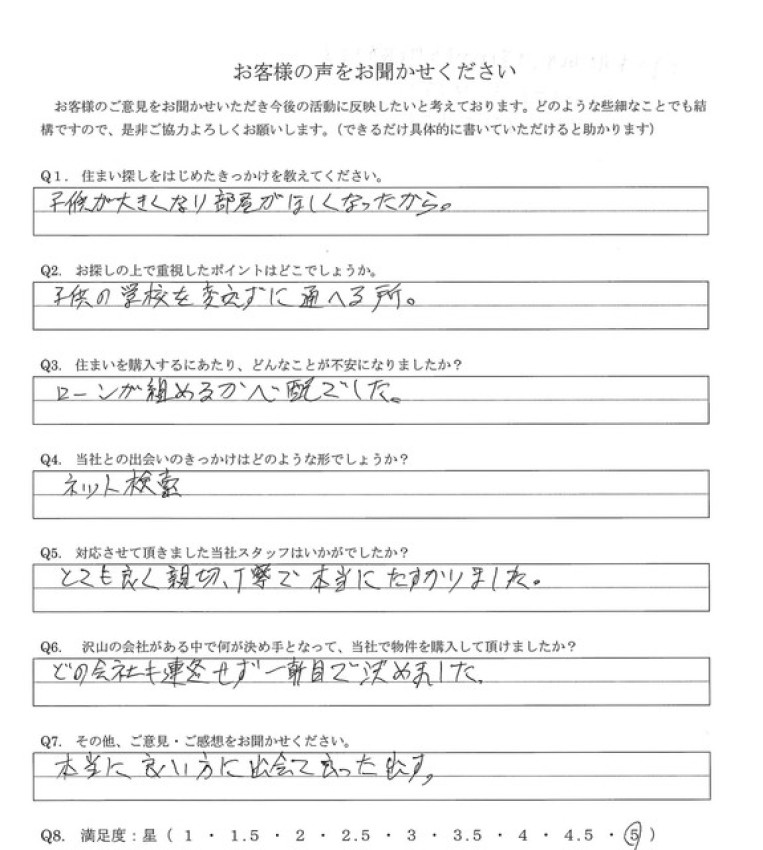 お客様の声をお聞かせください
お客様のご意見をお聞かせいただき今後の活動に反映したいと考えております。どのような些細なことでも結
構ですので、是非ご協力よろしくお願いします。（できるだけ具体的に書いていただけると助かります）
Q1. 住まい探しをはじめたきっかけを教えてください。
子供が大きくなり部屋がほしくなったから。
Q2. お探しの上で重視したポイントはどこでしょうか。
子供の学校を変えずに通へる所。
Q3. 住まいを購入するにあたり、どんなことが不安になりましたか？
ローンが組めるか心配でした。
Q4. 当社との出会いのきっかけはどのような形でしょうか？
ネット検索
Q5. 対応させて頂きました当社スタッフはいかがでしたか？
とても良く親切、丁寧で本当にたすかりました。
Q6. 沢山の会社がある中で何が決め手となって、当社で物件を購入して頂けましたか？
どの会社も連絡せず一軒目で決めました。
Q7. その他、ご意見・ご感想をお聞かせください。
本当に良い方に出会て良った
Q8. 満足度：星（ 1 ・ 1.5 ・ 2 ・ 2.5 ・ 3 ・ 3.5 ・ 4 ・ 4.5 ・ 5 ）